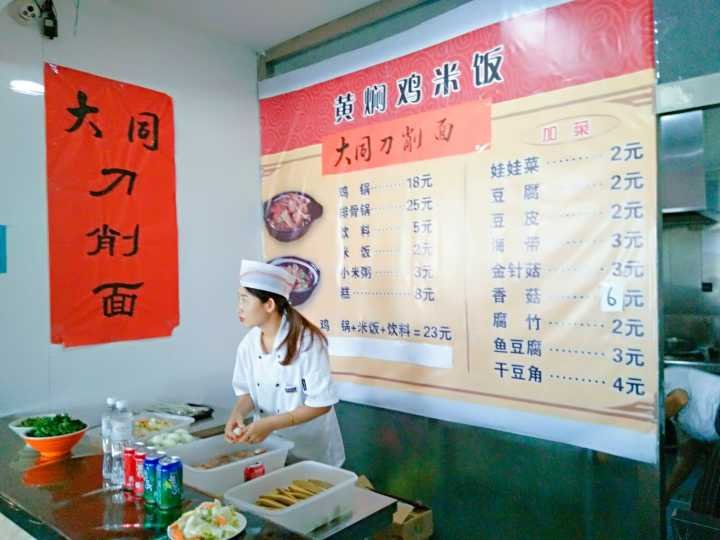 大同
刀
削
面
黄焖鸡米饭
大同刀削面
加菜
鸡 锅………18元
排骨锅………25元
饮 料………5元
米 饭………2元
小米粥………3元
糕………8元
鸡 锅+米饭+饮料=23元
娃娃菜………2元
豆 腐………2元
豆 皮………2元
海 带………3元
金针菇………3元
香 菇………6元
腐 竹………2元
鱼豆腐………3元
干豆角………4元